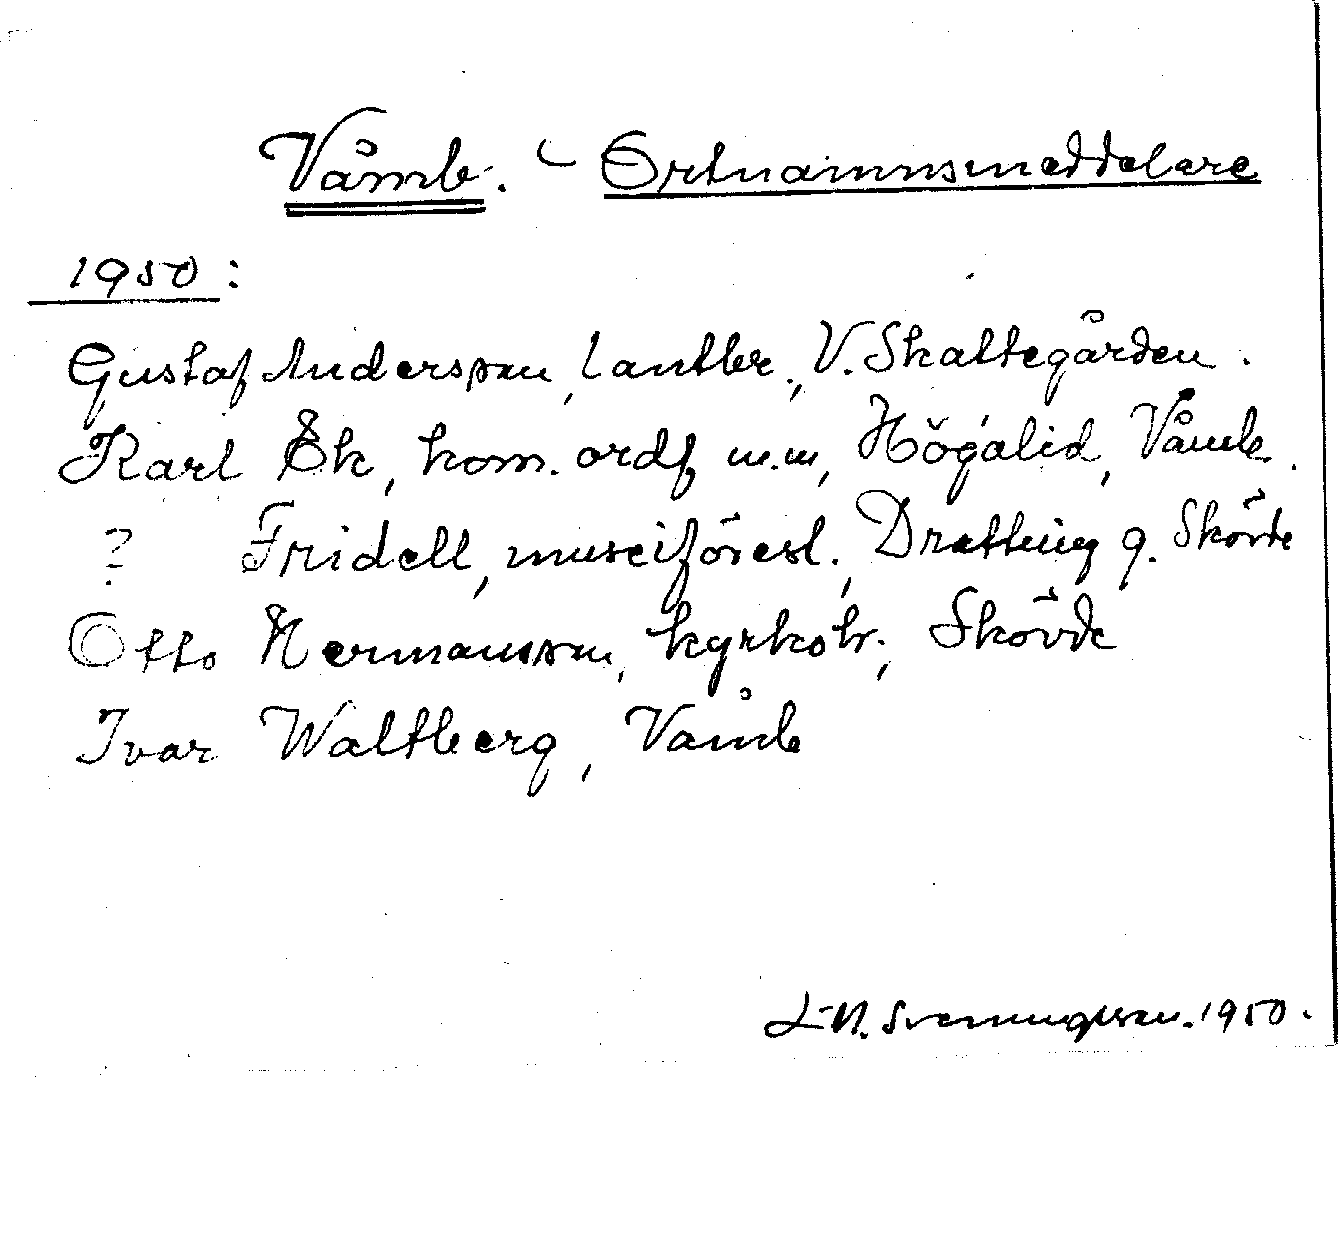 Våmb. - Ortnamnsmeddelare
1950:
Gustaf Andersson, lantbr., V. Skattegården.
Karl Ek, kom. ordf m.m, Högalid, Våmb.
? Fridell, museiförest., Drottning g. Skövde
Otto Hermansson, kyrkobr., Skövde
Ivar Waltberg, Våmb
Sveningsson. 1950.